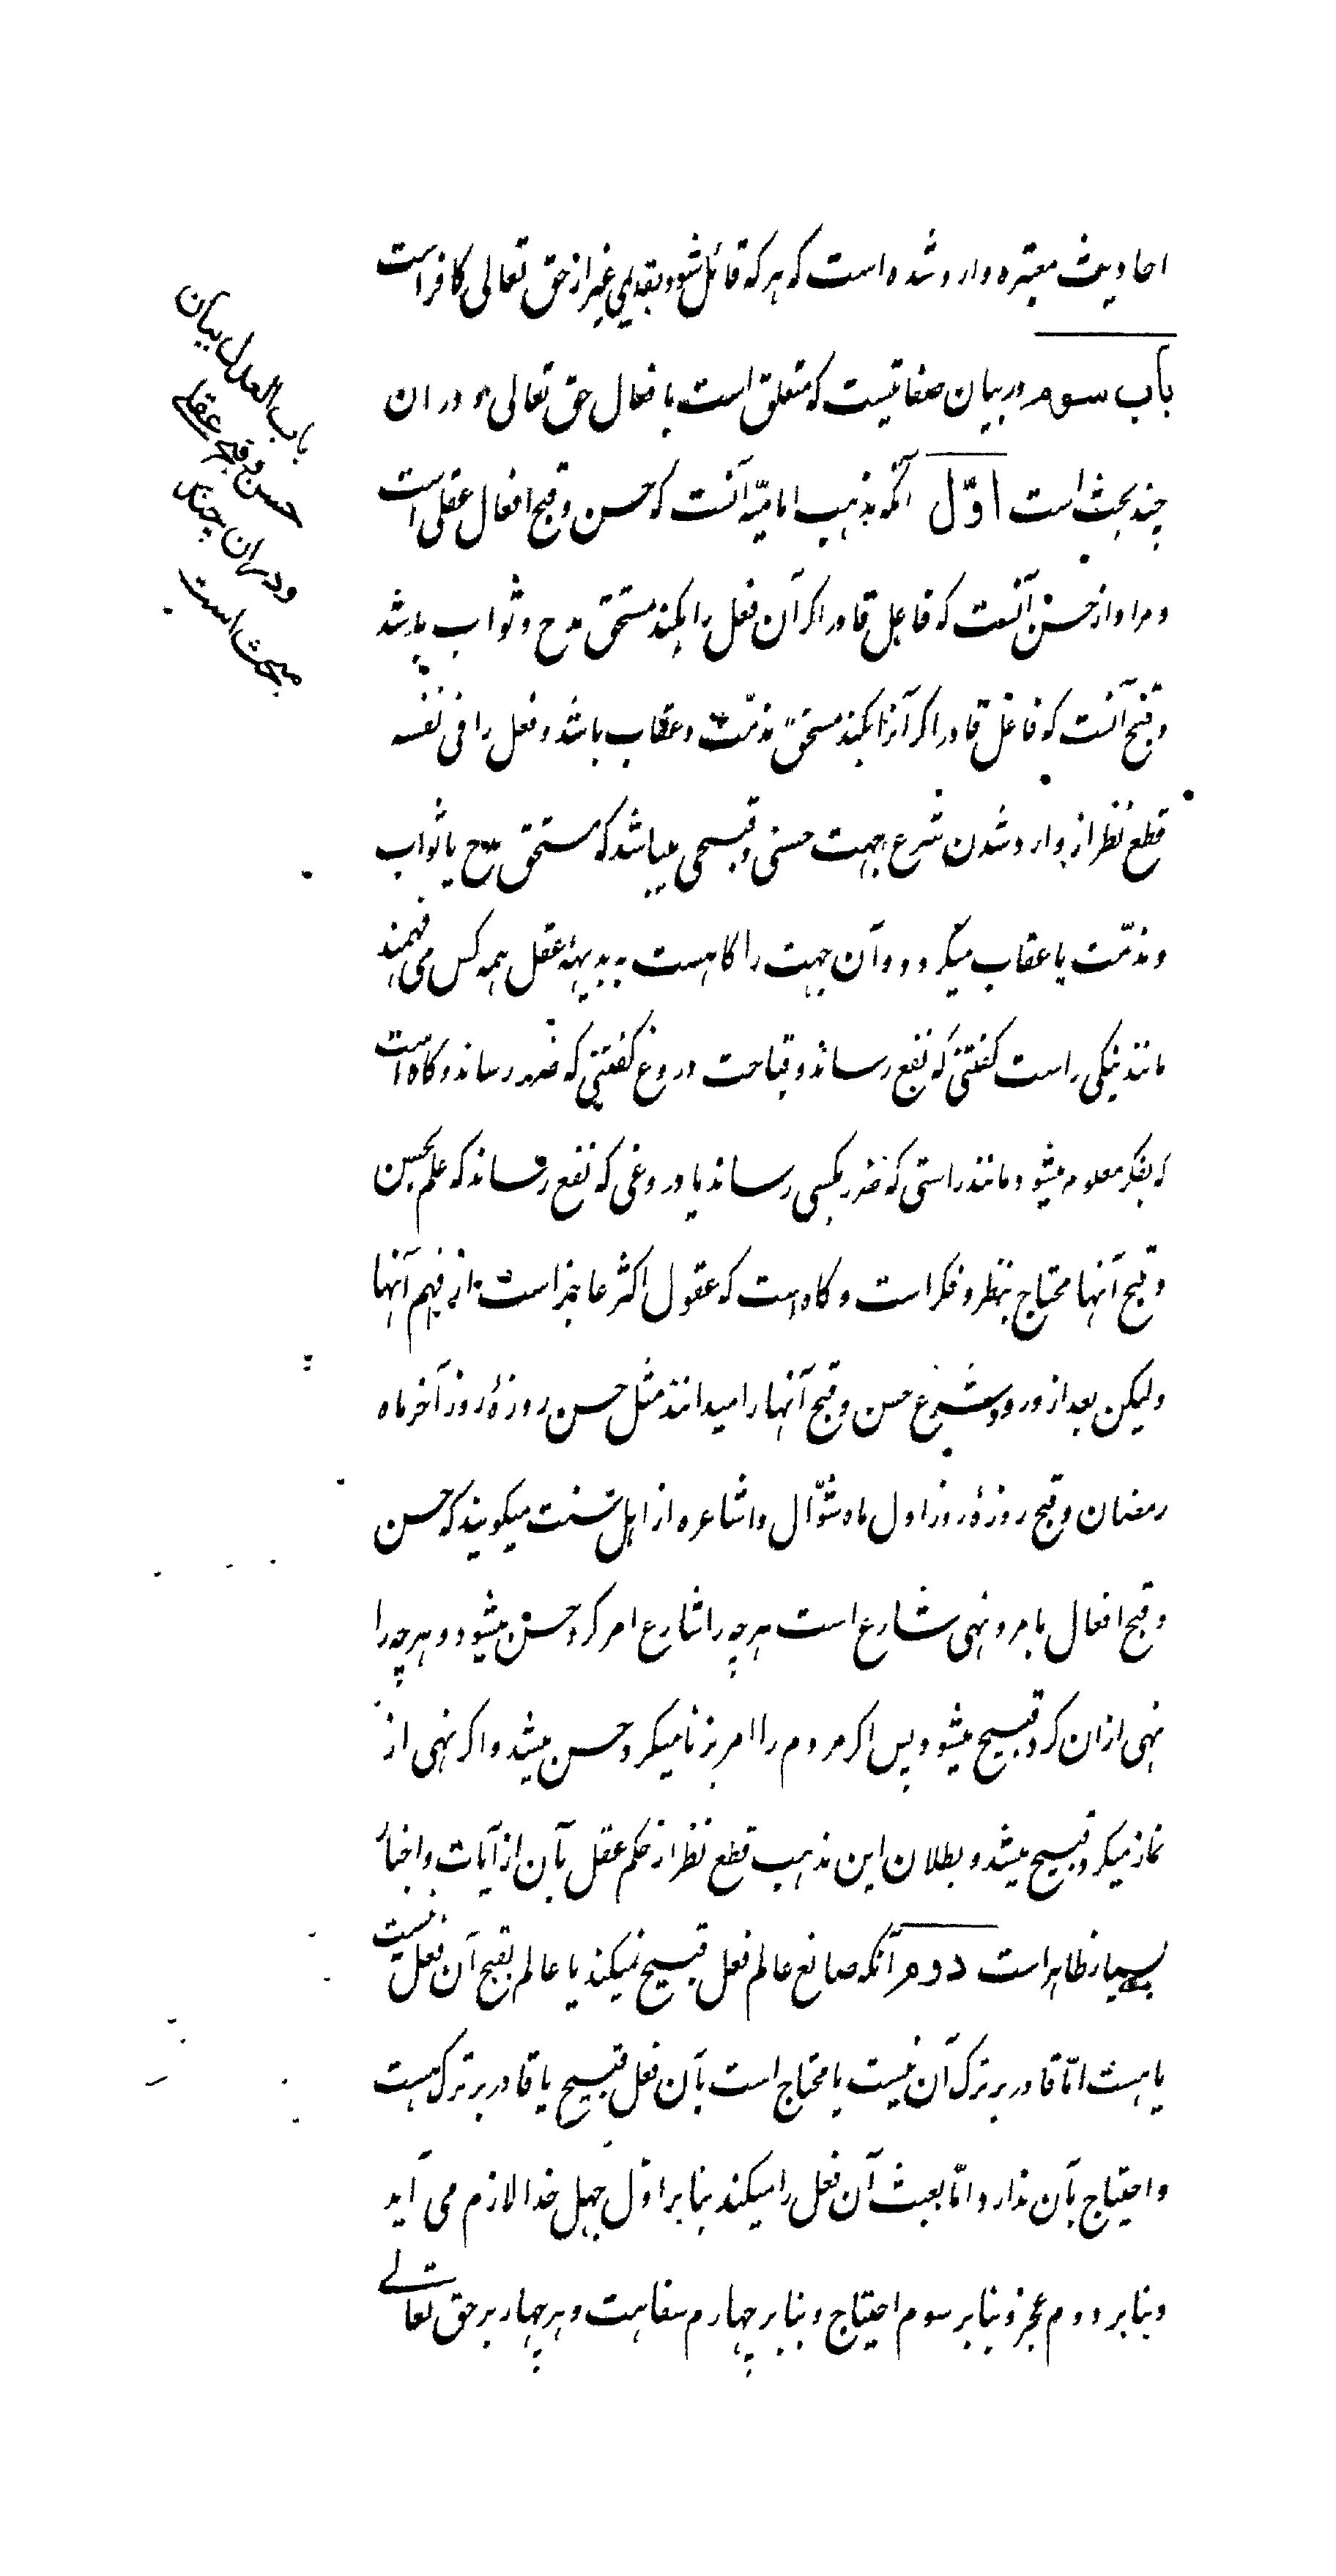 احادیث معتبره وارد شده است که هر که قائل شود بقدیمی غیر از حق تعالی کافر است
باب سوم در بیان صفاتیست که متعلق است بافعال حق تعالی و در ان
چند بحث است اوّل آنکه مذهب امامیّه آنست که حسن و قبح افعال عقلی است
و مراد از حسن آنست که فاعل قادر اگر آن فعل را بکند مستحق مدح و ثواب باشد
و قبح آنست که فاعل قادر اگر آنرا بکند مستحقّ مذمّت و عقاب باشد و فعل را فی نفسه
قطع نظر از وارد شدن شرع جهت حسنی و قبحی میباشد که مستحق مدح یا ثواب
و مذمّت یا عقاب میگردد و آن جهت را گاهست به بدیههٔ عقل همه کس می فهمند
مانند نیکی راست گفتنی که نفع رساند و قباحت دروغ گفتنی که ضرر رساند و گاه است
که بفکر معلوم میشود مانند راستی که ضرر بکسی رساند یا دروغی که نفع رساند که علم بحسن
و قبح آنها محتاج بنظر و فکر است و گاه هست که عقول اکثر عاجز است از فهم آنها
ولیکن بعد از ورود شرع حسن و قبح آنها را میدانند مثل حسن روزهٔ روز آخر ماه
رمضان و قبح روزهٔ روز اول ماه شوّال و اشاعره از اهل سنت میکویند که حسن
و قبح افعال بامر و نهی شارع است هرچه را شارع امر کرد حسن میشود و هرچه را
نهی از ان کرد قبیح میشود پس اکر مردم را امر بزنا میکرد حسن میشد و اکر نهی از
نماز میکرد قبیح میشد و بطلان این مذهب قطع نظر از حکم عقل بآن از آیات و اخبار
بسیار ظاهر است دوم آنکه صانع عالم فعل قبیح نمیکند یا عالم بقبح آن فعل نیست
یا هست امّا قادر بر ترک آن نیست یا محتاج است بآن فعل قبیح یا قادر بر ترک هست
و احتیاج بآن ندارد و امّا بعبث آن فعل را میکند بنا بر اوّل جهل خدا لازم می آید
و بنا بر دوم عجز و بنا بر سوم احتیاج و بنا بر چهارم سفاهت و هر چهار بر حق تعالے
باب العدل بیان
حسن و قبح عقلے
و دران چند
مبحث است